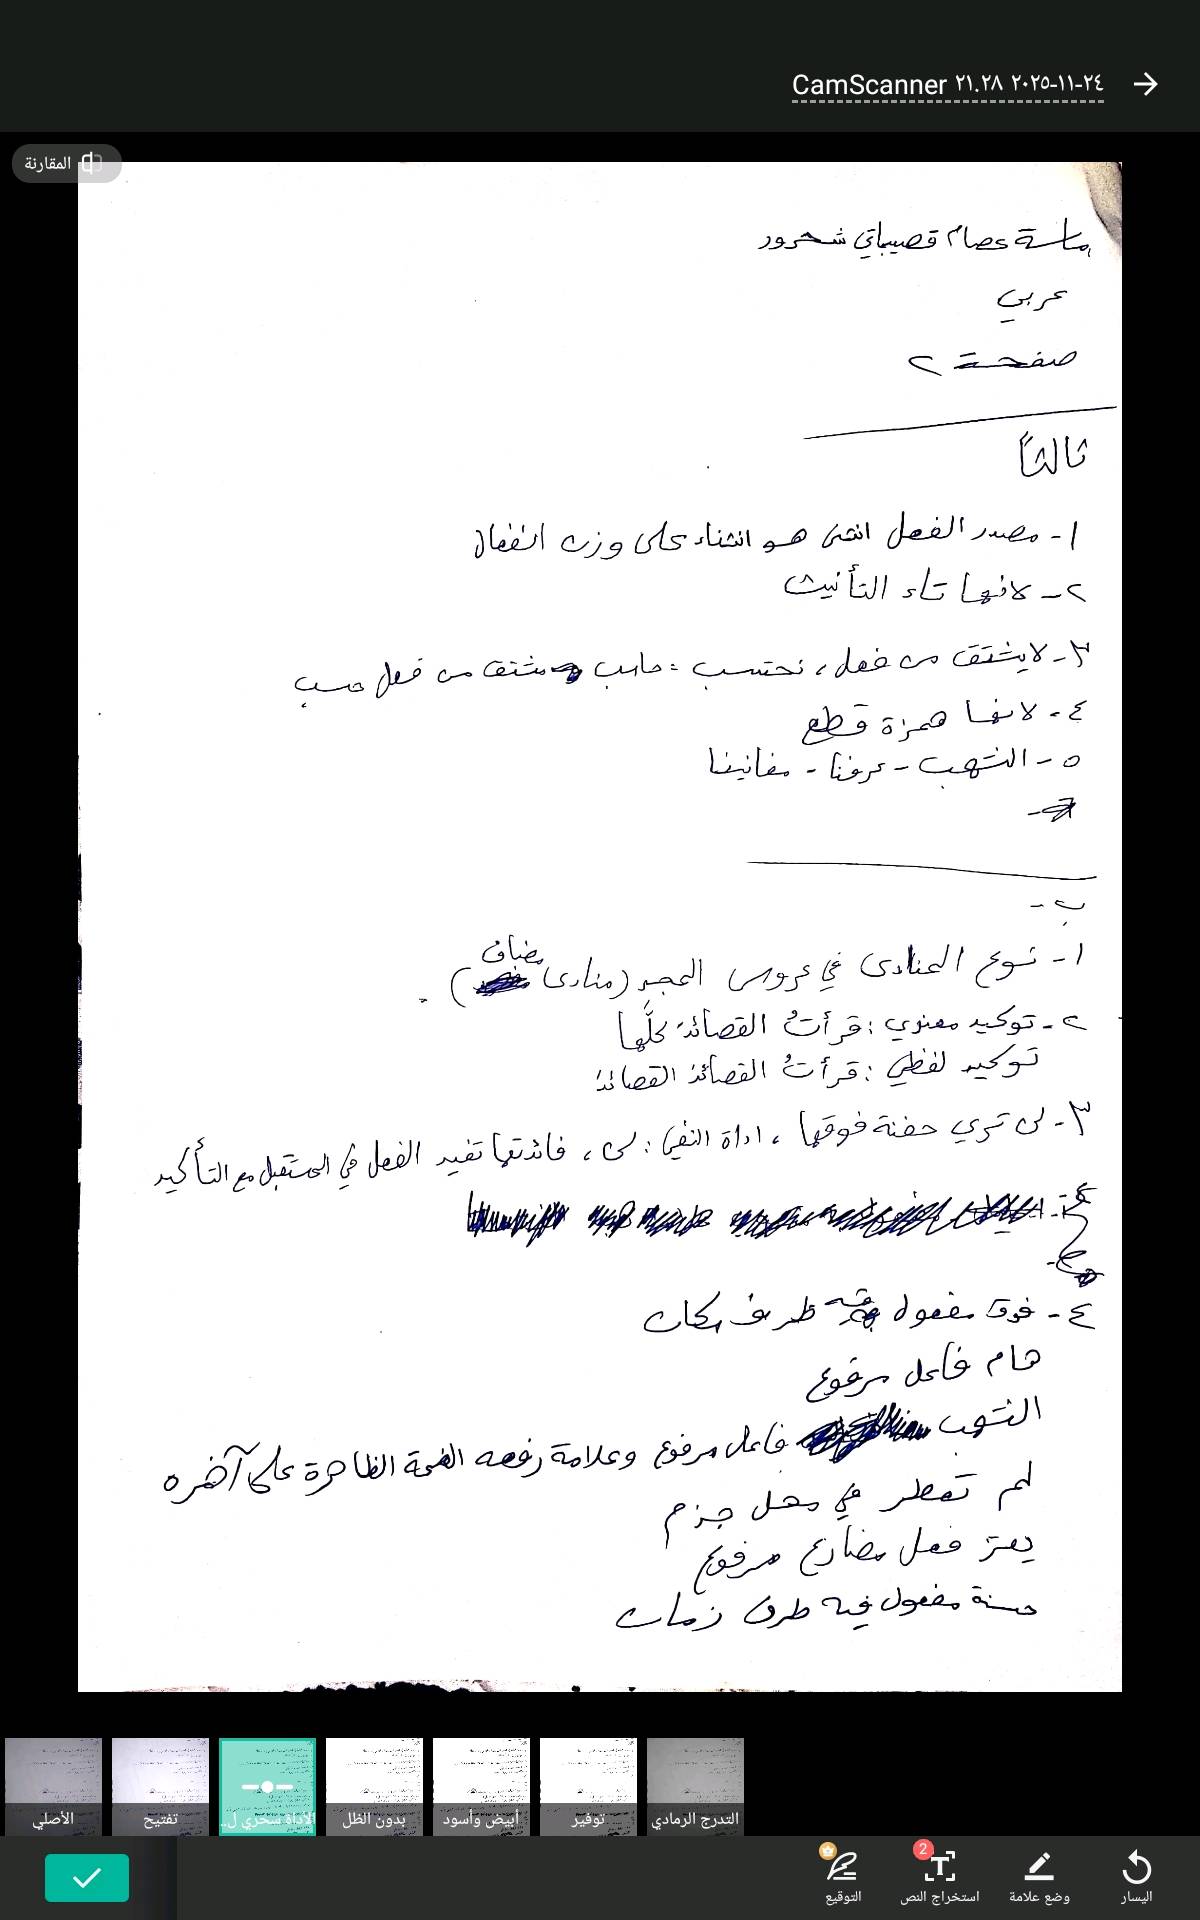 CamScanner ٢٤-١١-٢٠٢٥ ٢١.٢٨
المقارنة
ماسة عصام قصيباتي شحرور
عربي
صفحة ٢
ثالثاً
١- مصدر الفعل انثنى هو انثناء على وزن انفعال
٢- لانها تاء التأنيث
٣- لا يشتق من فعل، نحتسب: حاسب مشتق من فعل حسب
٤- لانها همزة قطع
٥- الشهب - عرفنا - مغانينا
ب -
١- نوع المنادى في عروس المجد (منادى مضاف).
٢- توكيد معنوي: قرأتُ القصائدَ كلَّها
توكيد لفظي: قرأتُ القصائدَ القصائدَ
٣- لن تري حفنة فوقها، اداة النفي: لن، فائدتها تفيد الفعل في المستقبل مع التأكيد
٤- فوق مفعول فيه ظرف مكان
هام فاعل مرفوع
الشهب فاعل مرفوع وعلامة رفعه الضمة الظاهرة على آخره
لم تمطر في محل جزم
يعتز فعل مضارع مرفوع
مفعول فيه ظرف زمان
الأصلي
تفتيح
الأداة سحري ل..
بدون الظل
أبيض وأسود
توفير
التدرج الرمادي
اليسار
وضع علامة
2
استخراج النص
التوقيع